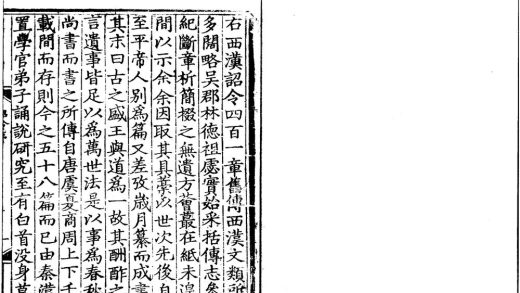 右西漢詔令四百一章舊傳西漢文類所
多闊略吳郡林德祖虙實始采括傳志參
紀斷章析簡掇之無遺方薈蕞在紙未遑
間以示余余因取其具藳以世次先後自
至平帝人別為篇又差攷歲月纂而成書
其末曰古之盛王與道為一故其酬酢之
言遺事皆足以為萬世法是以事為春秋
尚書而書之所傳自唐虞夏商周上下千
載間而存則今之五十八篇而已由秦漢
置學官弟子誦說研究至有白首没身莫